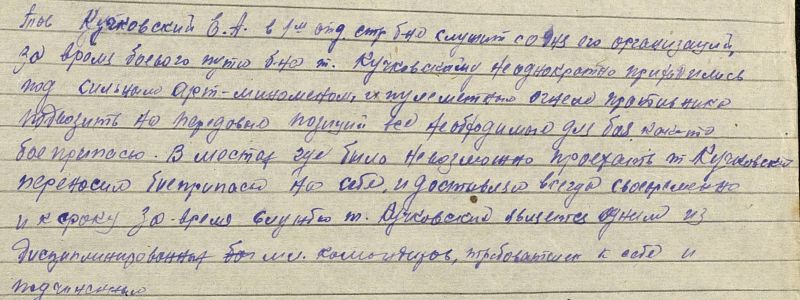 тов Кучковский Е. А. в 1м отд. стр. б-не служит со дня его организаций,
За время боевого пути б-на т. Кучковскому неоднократно приходилось
под сильным Арт-минометном, и пулеметным огнем противника
подвозить на передовые позиций все необходимое для боя как то
боеприпасы. В местах где было невозможно проехать т. Кучковский
переносил боеприпасы на себе, и доставлял всегда своевременно
и к сроку За время службы т. Кучковский является одним из
дисциплинированных мл. командиров, требователен к себе и
подчиненным